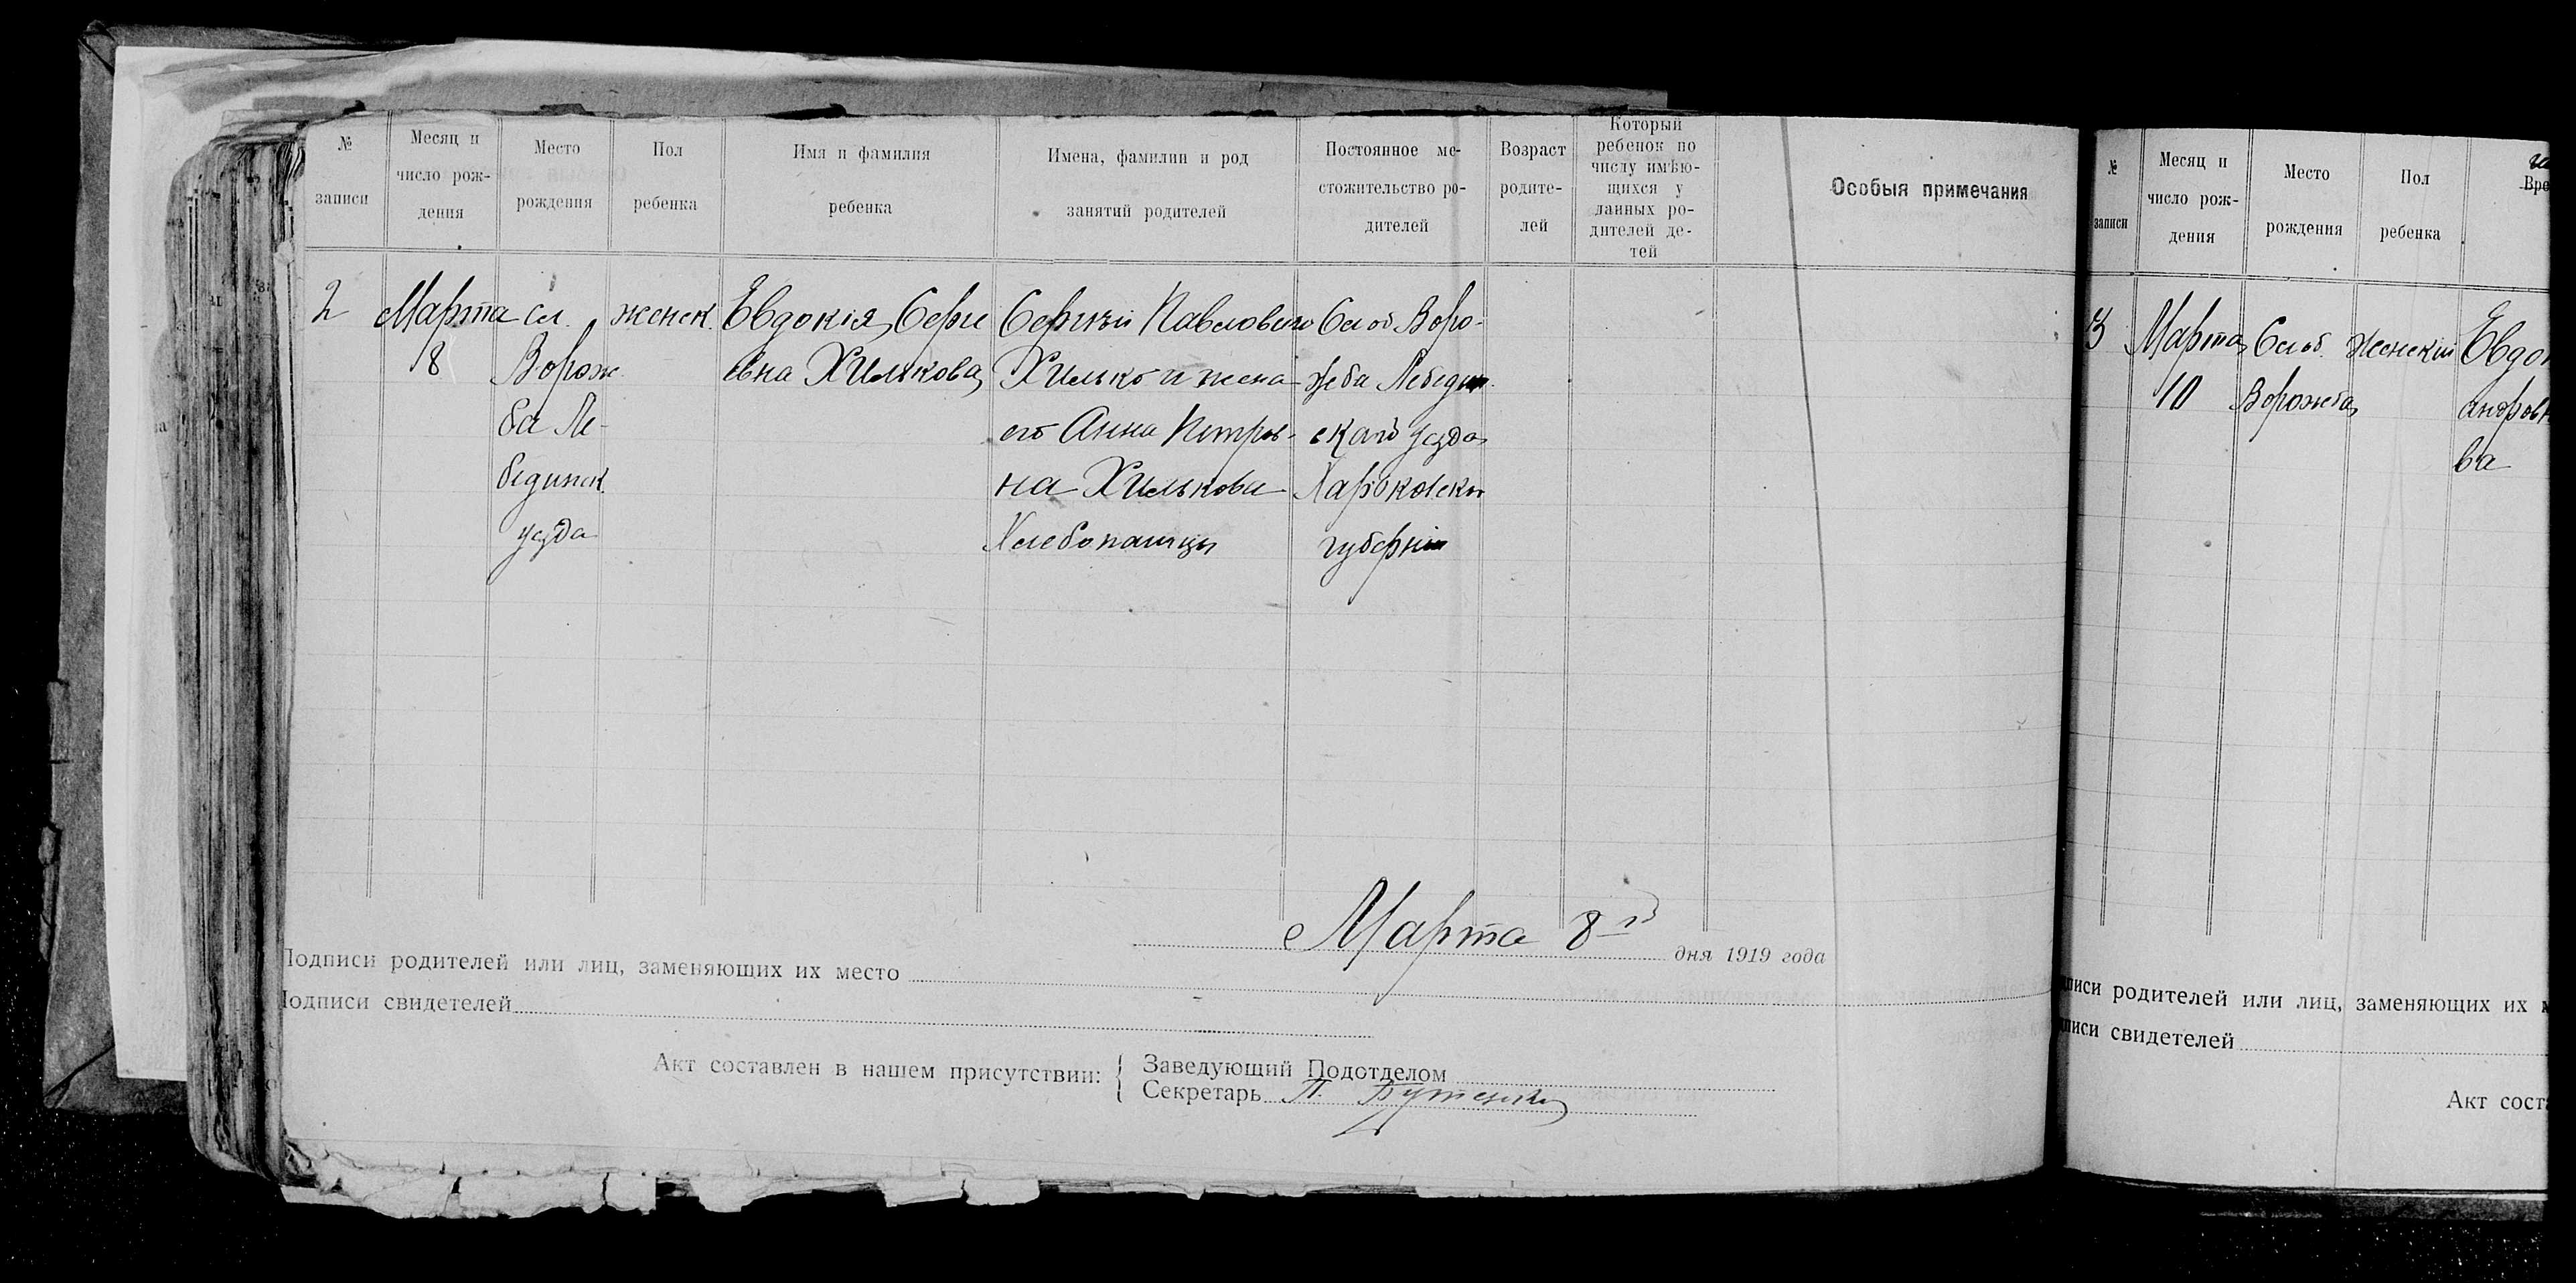 № записи
Месяц и число рождения
Место рождения
Пол ребенка
Имя и фамилия ребенка
Имена, фамилии и род занятий родителей
Постоянное местожительство родителей
Возраст родителей
Который ребенок по числу имѣющихся у данных родителей детей
Особыя примечания
2
Марта
8
сл.
Ворож
ба Ле-
бединск.
уезда
женск.
Евдокія Серги
евна Хилькова
Сергѣй Павлович
Хилько и жена
его Анна Петров-
на Хилькова
Хлебопашцы
Слоб Воро-
жба Лебедин
скаго уезда
Харьковской
губернии
Марта 8го дня 1919 года
Подписи родителей или лиц, заменяющих их место
Подписи свидетелей
Акт составлен в нашем присутствии:
Заведующий Подотделом
Секретарь П. Бутенко
№ записи
Месяц и число рождения
Место рождения
Пол ребенка
3
Марта
10
Слоб.
Ворожба
Женский
Евдо
андров
ва
писи родителей или лиц, заменяющих их
писи свидетелей
Акт сост